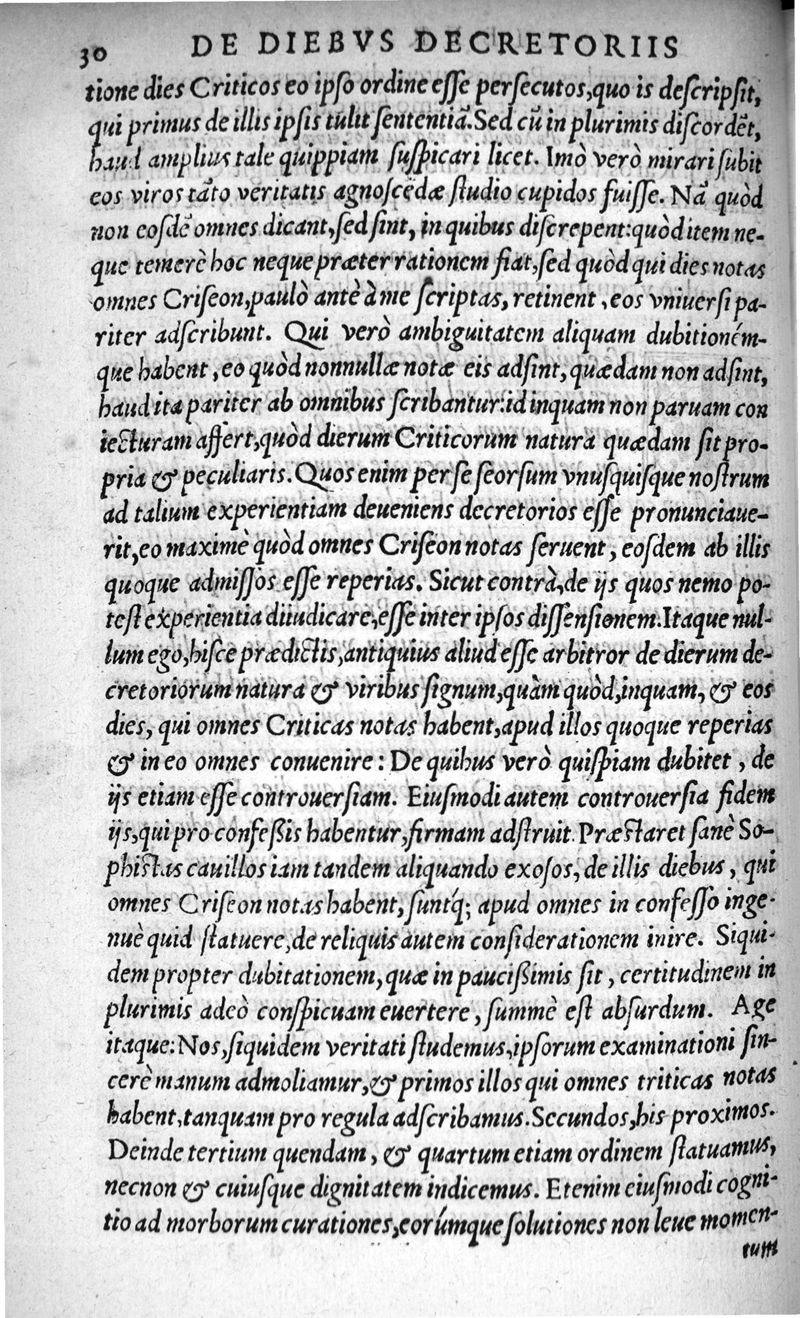 30 DE DIEBVS DECRETORIIS
tione dies Criticos eo ipſo ordine eſſe perſecutos,quo is deſcripſit,
qui primus de illis ipſis tulit ſententiã.Sed cũ in plurimis diſcordẽt,
haud amplius tale quippiam ſuſpicari licet. Imò verò mirari ſubit
eos viros tãto veritatis agnoſcẽdæ ſtudio cupidos fuiſſe. Nã quòd
non eoſdẽ omnes dicant,ſed ſint, in quibus diſcrepent:quòd item ne-
que temerè hoc neque præter rationem fiat,ſed quòd qui dies notas
omnes Criſeon,paulò antè à me ſcriptas, retinent ,eos vniuerſi pa-
riter adſcribunt. Qui verò ambiguitatem aliquam dubitioném-
que habent ,eo quòd nonnullæ notæ eis adſint,quædam non adſint,
haud ita pariter ab omnibus ſcribantur:id inquam non paruam con
iecturam affert,quòd dierum Criticorum natura quædam ſit pro-
pria & peculiaris.Quos enim per ſe ſeorſum vnuſquiſque noſtrum
ad talium experientiam deueniens decretorios eſſe pronunciaue-
rit,eo maximè quòd omnes Criſeon notas ſeruent, eoſdem ab illis
quoque admiſſos eſſe reperias. Sicut contrà,de ijs quos nemo po-
teſt experientia diiudicare,eſſe inter ipſos diſſenſionem.Itaque nul-
lum ego,hiſce prædictis,antiquius aliud eſſe arbitror de dierum de-
cretoriorum natura & viribus ſignum,quàm quòd,inquam, & eos
dies, qui omnes Criticas notas habent,apud illos quoque reperias
& in eo omnes conuenire: De quibus verò quiſpiam dubitet , de
ijs etiam eſſe controuerſiam. Eiuſmodi autem controuerſia fidem
ijs,qui pro confeßis habentur,firmam adſtruit. Præſtaret ſanè So-
phiſtas cauillos iam tandem aliquando exoſos, de illis diebus, qui
omnes Criſeon notas habent, ſuntq́; apud omnes in confeſſo inge-
nuè quid ſtatuere,de reliquis autem conſiderationem inire. Siqui-
dem propter dubitationem,quæ in pauciſsimis ſit , certitudinem in
plurimis adeò conſpicuam euertere, ſummè eſt abſurdum. Age
itaque: Nos,ſiquidem veritati ſtudemus,ipſorum examinationi ſin-
cerè manum admoliamur,& primos illos qui omnes triticas notas
habent,tanquam pro regula adſcribamus.Secundos,his proximos.
Deinde tertium quendam, & quartum etiam ordinem ſtatuamus,
necnon & cuiuſque dignitatem indicemus. Etenim eiuſmodi cogni-
tio ad morborum curationes,eorúmque ſolutiones non leue momen-
tum